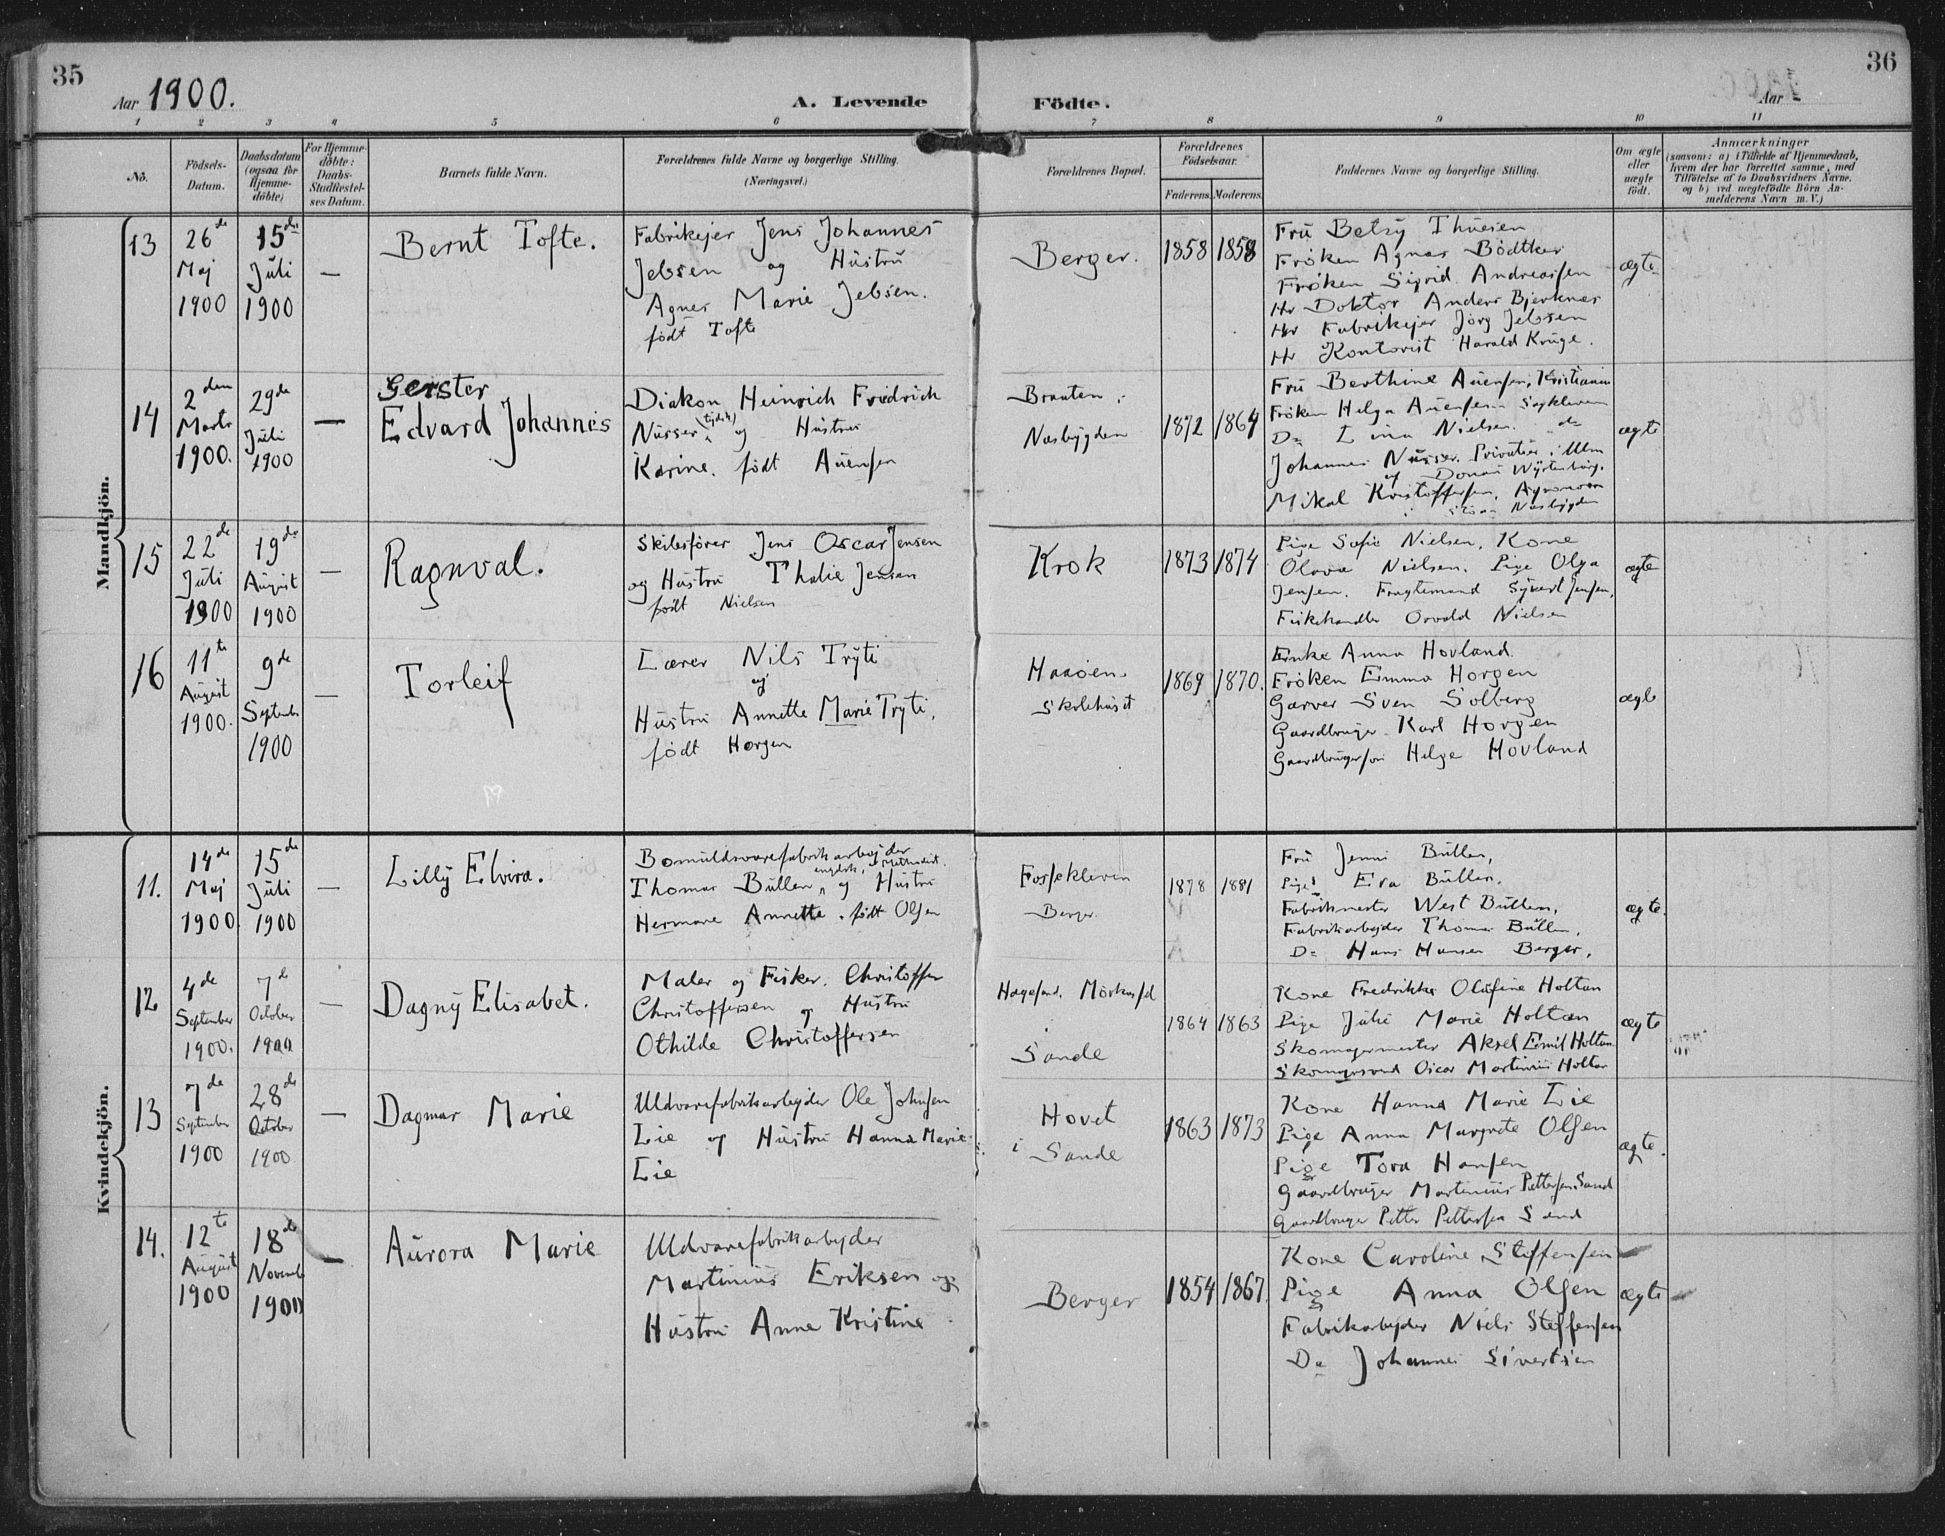 35
Aar 1900.
A. Levende
1 2 3 4 5 6
No.
Födsels-
Datum.
Daabsdatum
(ogsaa for
Hjemme-
döbte)
For Hjemme-
döbte:
Daabs-
Stadfæstel-
ses Datum.
Barnets fulde Navn.
Forældrenes fulde Navne og borgerlige Stilling.
(Næringsvei.)
Mandkjön.
13
26de
Maj
1900
15de
Juli
1900
—
Bernt Tofte.
Fabrikejer Jens Johannes
Jebsen og Hustru
Agnes Marie Jebsen.
født Tofte
14
2den
Marts
1900.
29de
Juli
1900
—
Gerster
Edvard Johannes
Diakon Heinrich Friedrich
Nusser (tydsk) og Hustru
Karine. født Auensen
15
22de
Juli
1900
19de
August
1900
—
Ragnval.
Skibsfører Jens Oscar Jensen
og Hustru Thalie Jensen
født Nielsen
16
11te
August
1900.
9de
September
1900
—
Torleif
Lærer Nils Tryti
og
Hustru Annette Marie Tryti,
født Horgen
Kvindekjön.
11.
14de
Maj
1900.
15de
Juli
1900
—
Lilly Elvira.
Bomuldsvarefabrikarbejder
engelsk, Methodist.
Thomas Bullen og Hustru
Hermane Annette. født Olsen
12
4de
September
1900.
7de
October
1900
—
Dagny Elisabet.
Maler og Fisker. Christoffer
Christoffersen og Hustru
Othilde Christoffersen
13
7de
September
1900
28de
October
1900
—
Dagmar Marie
Uldvarefabrikarbejder Ole Johnsen
Lie og Hustru Hanna Marie
Lie
14.
12te
August
1900
18de
Novemb
1900
—
Aurora Marie
Uldvarefabrikarbejder
Martinius Eriksen og
Hustru Anne Kristine
36
Aar
Födte.
7 8 9 10 11
Forældrenes Bopæl.
Forældrenes
Födselsaar.
Faderens.
Moderens.
Faddernes Navne og borgerlige Stilling.
Om ægte
eller
uægte
födt.
Anmærkninger
(saasom: a) i Tilfælde af Hjemmedaab,
hvem der har forrettet samme, med
Tilföielse af to Daabsvidners Navne,
og b) ved uægtefödte Börn An-
melderens Navn m. V.)
Berger.
1858
1858
Fru Betzy Thuesen
Frøken Agnes Bödtker
Frøken Sigrid Andreassen
Hr Doktor Anders Bjerknes
Hr Fabrikejer Jörg Jebsen
Hr Kontorist Harald Kruge.
ægte
Braaten,
Næsbygden
1872
1864
Fru Berthine Auensen, Kristiania
Frøken Helga Auensen
Do Lina Nielsen. do
Johannes Nusser. Privatier i Ulm
af Donau Wyrtenberg.
Mikal Kristoffersen,
Næsbygden
ægte
Krok
1873
1874
Pige Sofie Nielsen, Kone
Olava Nielsen. Pige Olga
Jensen. Fragtemand Sykert Jensen,
Fiskehandler Osvald Nielsen
ægte
Haaøen.
Skolehuset
1869
1870.
Enke Anna Hovland
Frøken Emma Horgen
Garver Sven Solberg
Gaardbruger Karl Horgen
Gaardbrugersøn Helge Hovland
ægte
Fosseklevin
Berger.
1878
1881
Fru Jenni Bullen,
Pige Eva Bullen.
Fabrikmester West Bullen,
Fabrikarbejder Thomas Bullen,
Do Hans Hansen Berger,
ægte.
Sande
1864
1863
Kone Fredrikke Olufine Holtan
Pige Julie Marie Holtan
Skomagermester Aksel Emil Holtan
Skomagersvend Oscar Martinius Holtan
ægte
Hovet
i Sande
1863
1873
Kone Hanna Marie Lie
Pige Anna Margrete Olsen
Pige Tora Hansen
Gaardbruger Martinius Pettersen Sand
Gaardbruger Petter Pettersen Sand
ægte.
Berger
1854
1867.
Kone Caroline Steffensen
Pige Anna Olsen
Fabrikarbejder Niels Steffensen
Do Johannes Sivertsen
ægte